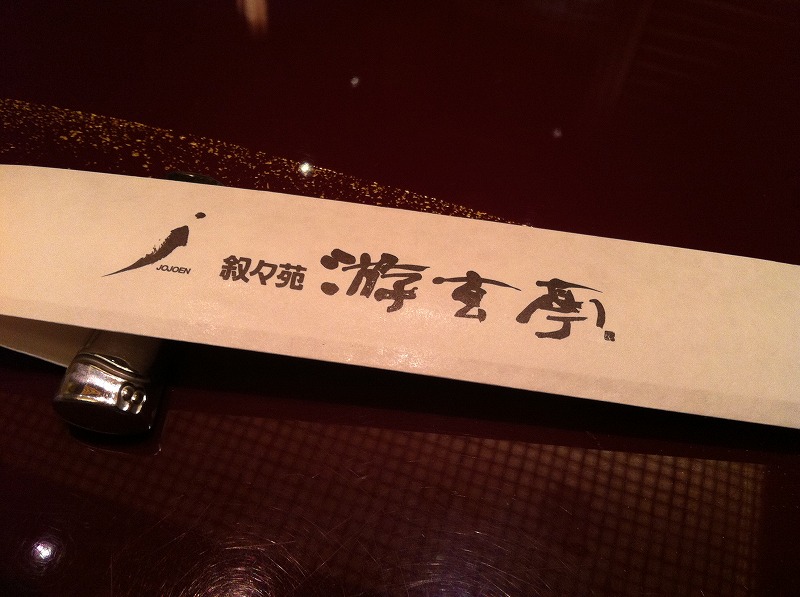 JOJOEN 叙々苑 游玄亭